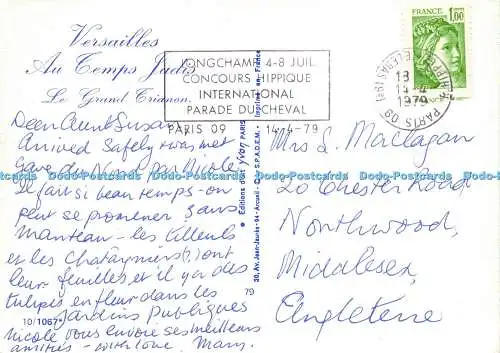 Versailles
Au Temps Jadis
Le Grand Trianon.
LONGCHAMP 4-8 JUIL
CONCOURS HIPPIQUE
INTERNATIONAL
PARADE DU CHEVAL
PARIS 09 14-4-79
FRANCE
1,00
18
14-4
1979
PARIS 09
Dear Aunt Susan
Arrived Safely & was met
Gare du Nord par Nicole
Il fait si beau temps - on
peut se promener sans
manteau - les tilleuls
et les Chataigniers(?) ont
leur feuilles et il y a des
tulipes en fleur dans les
Jardins Publiques
Nicole vous envoie ses meilleurs
amitiés - with love Mary.
10/1067
79
Editions d'art yvon PARIS
30, Av. Jean-Jaurès - 94 - Arcueil - S.P.A.D.E.M.
Imprimé en France
Mrs L. Maclagan
20 Chester Road
Northwood,
Middlesex,
Angleterre
Dodo-Postcards Dodo-Postcards Dodo-Postcards Dodo-Postcards